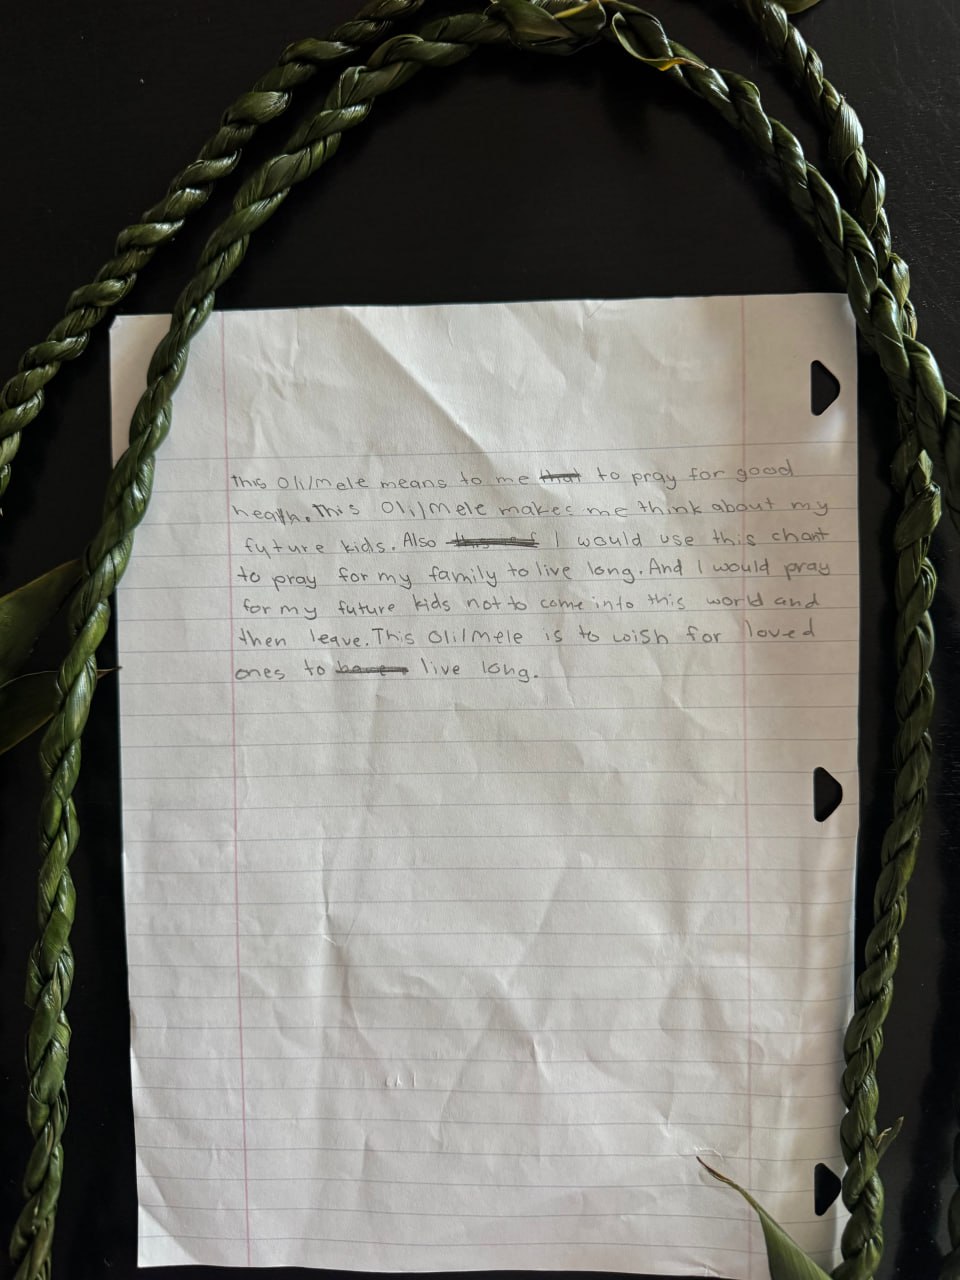 This Oli/Mele means to me that to pray for good
health. This Oli/Mele makes me think about my
future kids. Also I would use this chant
to pray for my family to live long. And I would pray
for my future kids not to come into this world and
then leave. This Oli/Mele is to wish for loved
ones to live long.